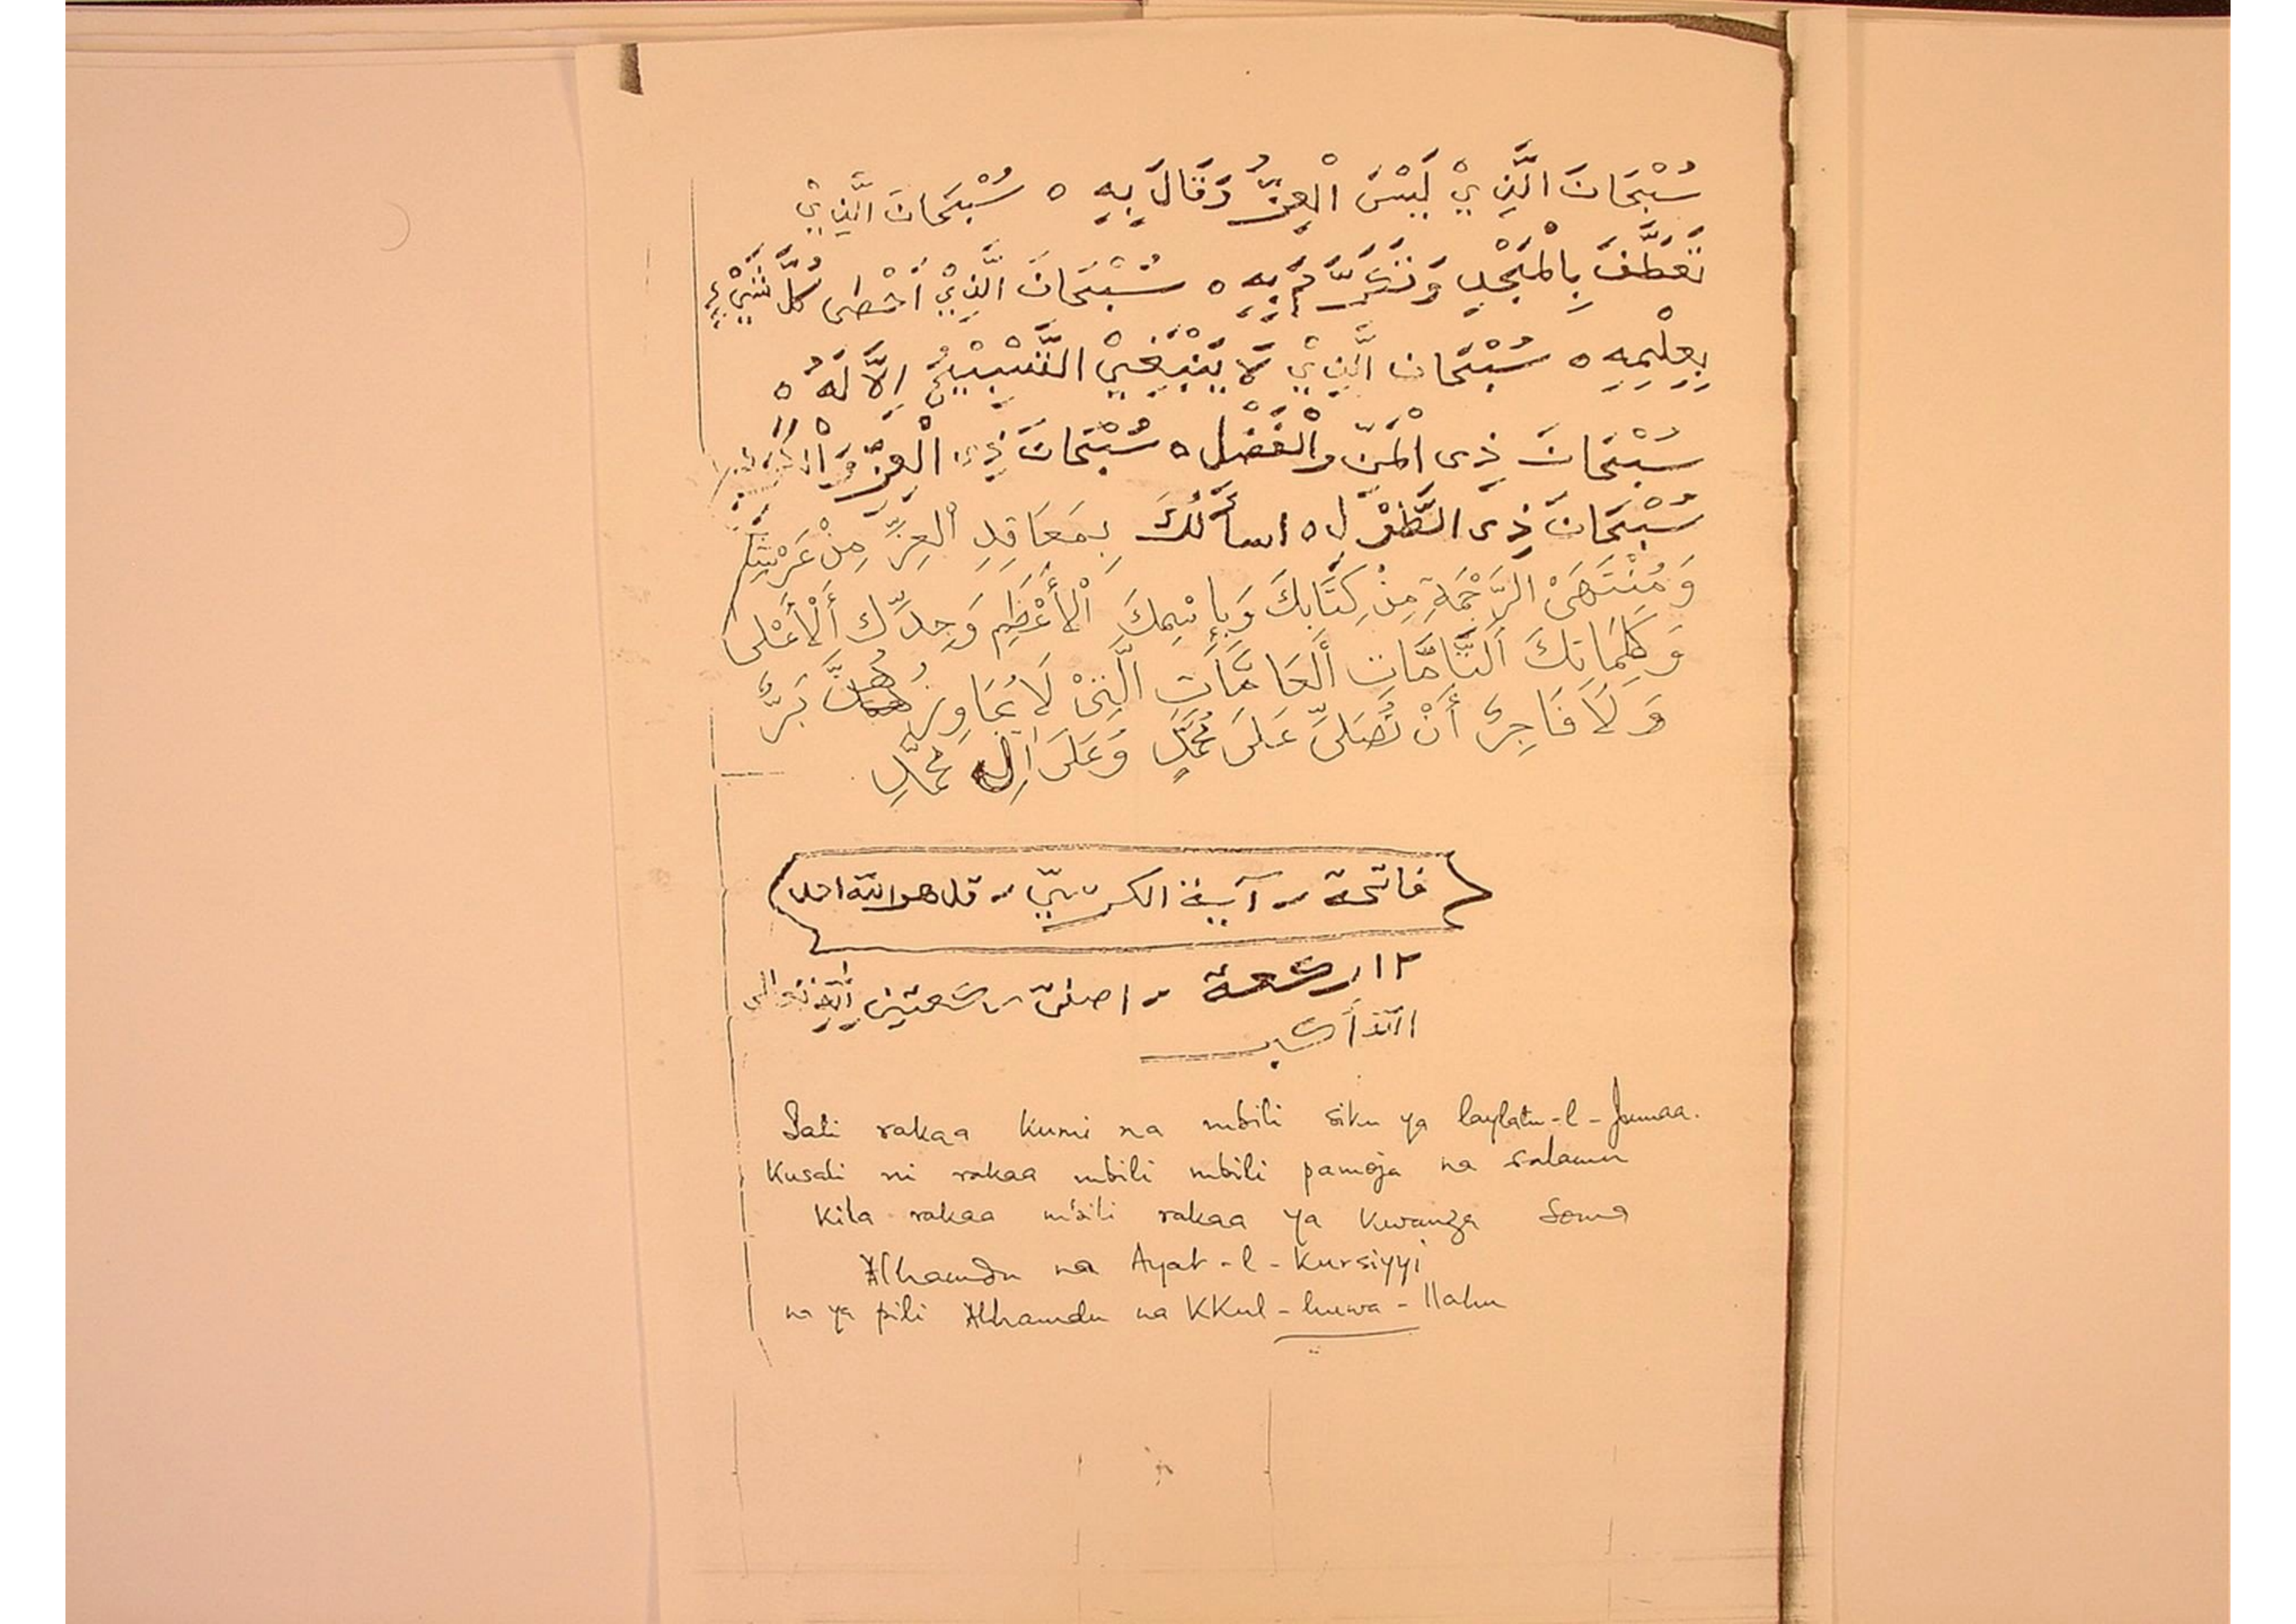 سُبْحَانَ الَّذِيْ لَبِسَ الْعِزُّ وَقَالَ بِهِ ه سُبْحَانَ الَّذِيْ
تَعَطَّفَ بِالْمَجْدِ وَتَكَرَّمَ بِهِ ه سُبْحَانَ الَّذِيْ أَحْصٰى كُلَّ شَيْءٍ
بِعِلْمِهِ ه سُبْحَانَ الَّذِيْ لَا يَنْبَغِيْ التَّسْبِيْحُ اِلَّا لَهُ ه
سُبْحَانَ ذِى الْمَنِّ وَالْفَضْلِ ه سُبْحَانَ ذِى الْعِزِّ وَالْكَرَمِ
سُبْحَانَ ذِى الطَّوْلِ ه اسأَلُكَ بِمَعَاقِدِ الْعِزِّ مِنْ عَرْشِكَ
وَمُنْتَهَىْ الرَّحْمَةِ مِنْ كِتَابِكَ وَبِإِسْمِكَ الْأَعْظَمِ وَجِدِّكَ أَلْأَعْلَى
وَكَلِمَاتِكَ اَلتَّامَّاتِ أَلْعَامَّاتِ الَّتِىْ لَا يُجَاوِزُهُنَّ بَرٌّ
وَلَا فَاجِرٌ أَنْ تُصَلِّىَ عَلَى مُحَمَّدٍ وَعَلَىٰ اٰلِ مُحَمَّدٍ
فاتحة - آية الكرسيّ - قل هو الله احد
١٢ ركعة - اصلى ركعتين لِلّٰهِ تعالى
اللّٰه أكبر
Sali rakaa kumi na mbili siku ya laylatu-l-Jumaa.
Kusali ni rakaa mbili mbili pamoja na salamu
Kila rakaa mbili rakaa ya kwanza Soma
Alhamdu na Ayat-l-Kursiyyi
na ya pili Alhamdu na KKul-huwa-llahu